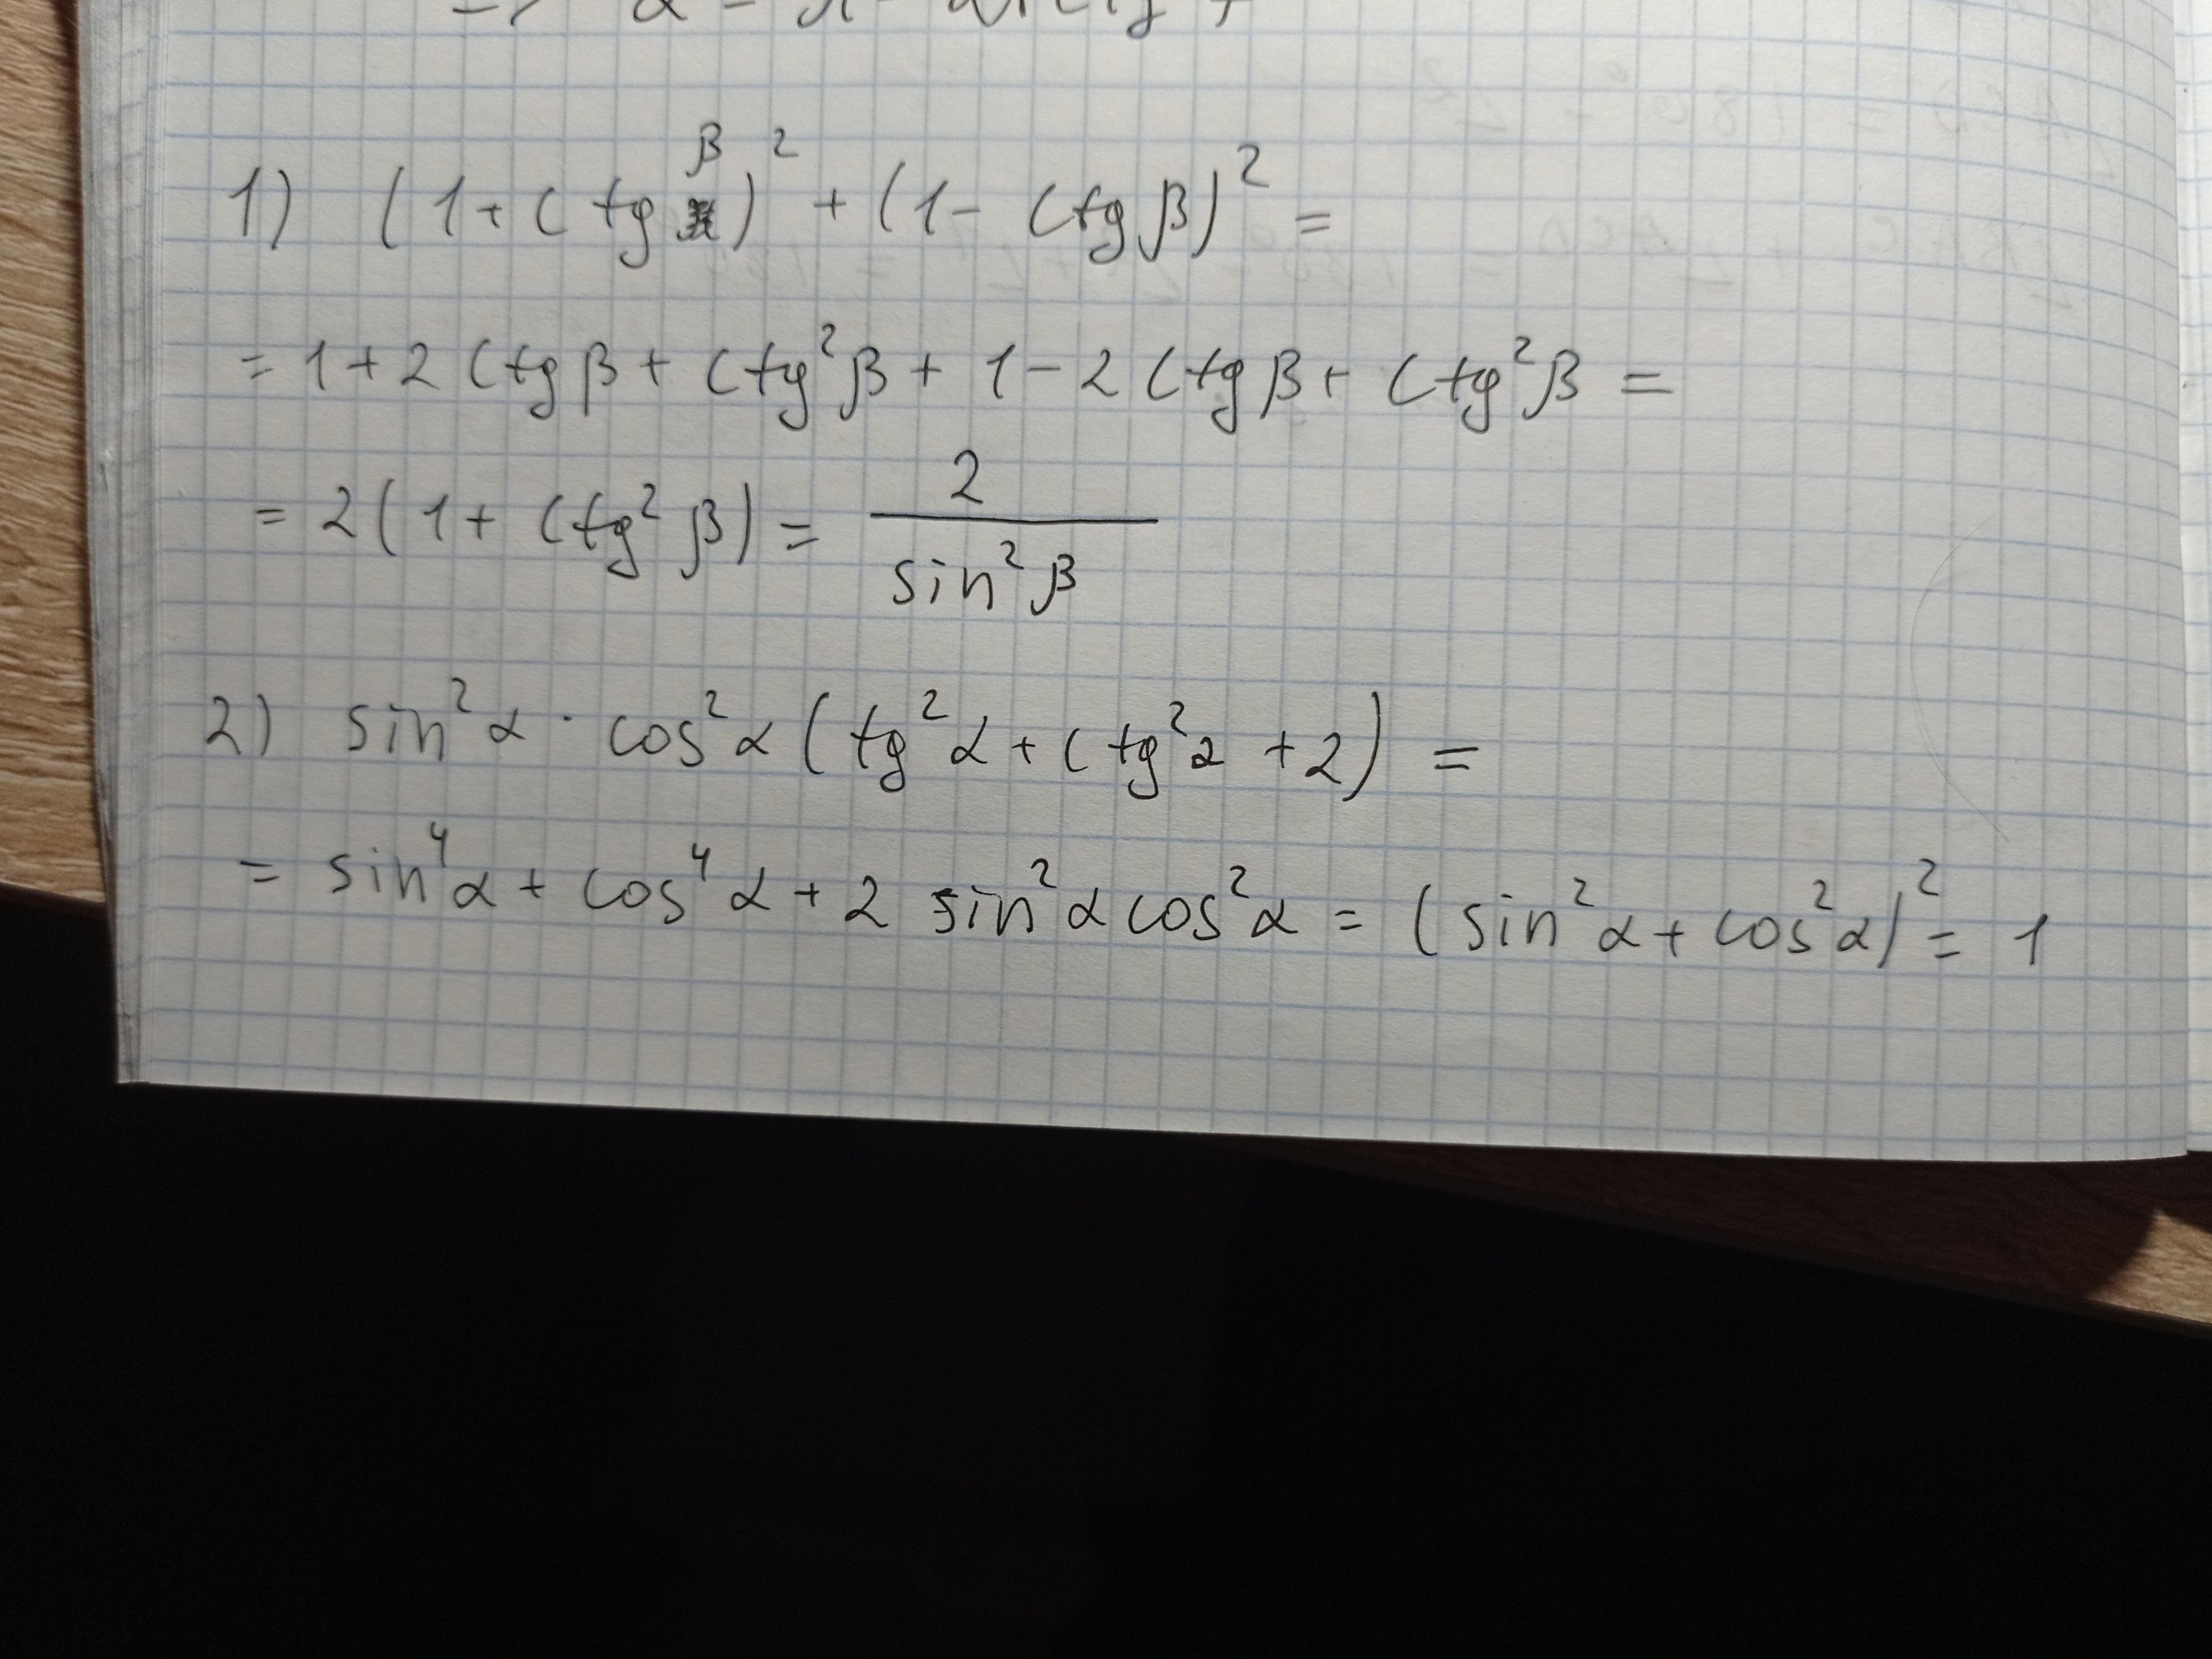 1) (1 + ctg β)² + (1 - ctg β)² =
= 1 + 2 ctg β + ctg² β + 1 - 2 ctg β + ctg² β =
= 2 (1 + ctg² β) = 2 / sin² β
2) sin² α · cos² α (tg² α + ctg² α + 2) =
= sin⁴ α + cos⁴ α + 2 sin² α cos² α = (sin² α + cos² α)² = 1